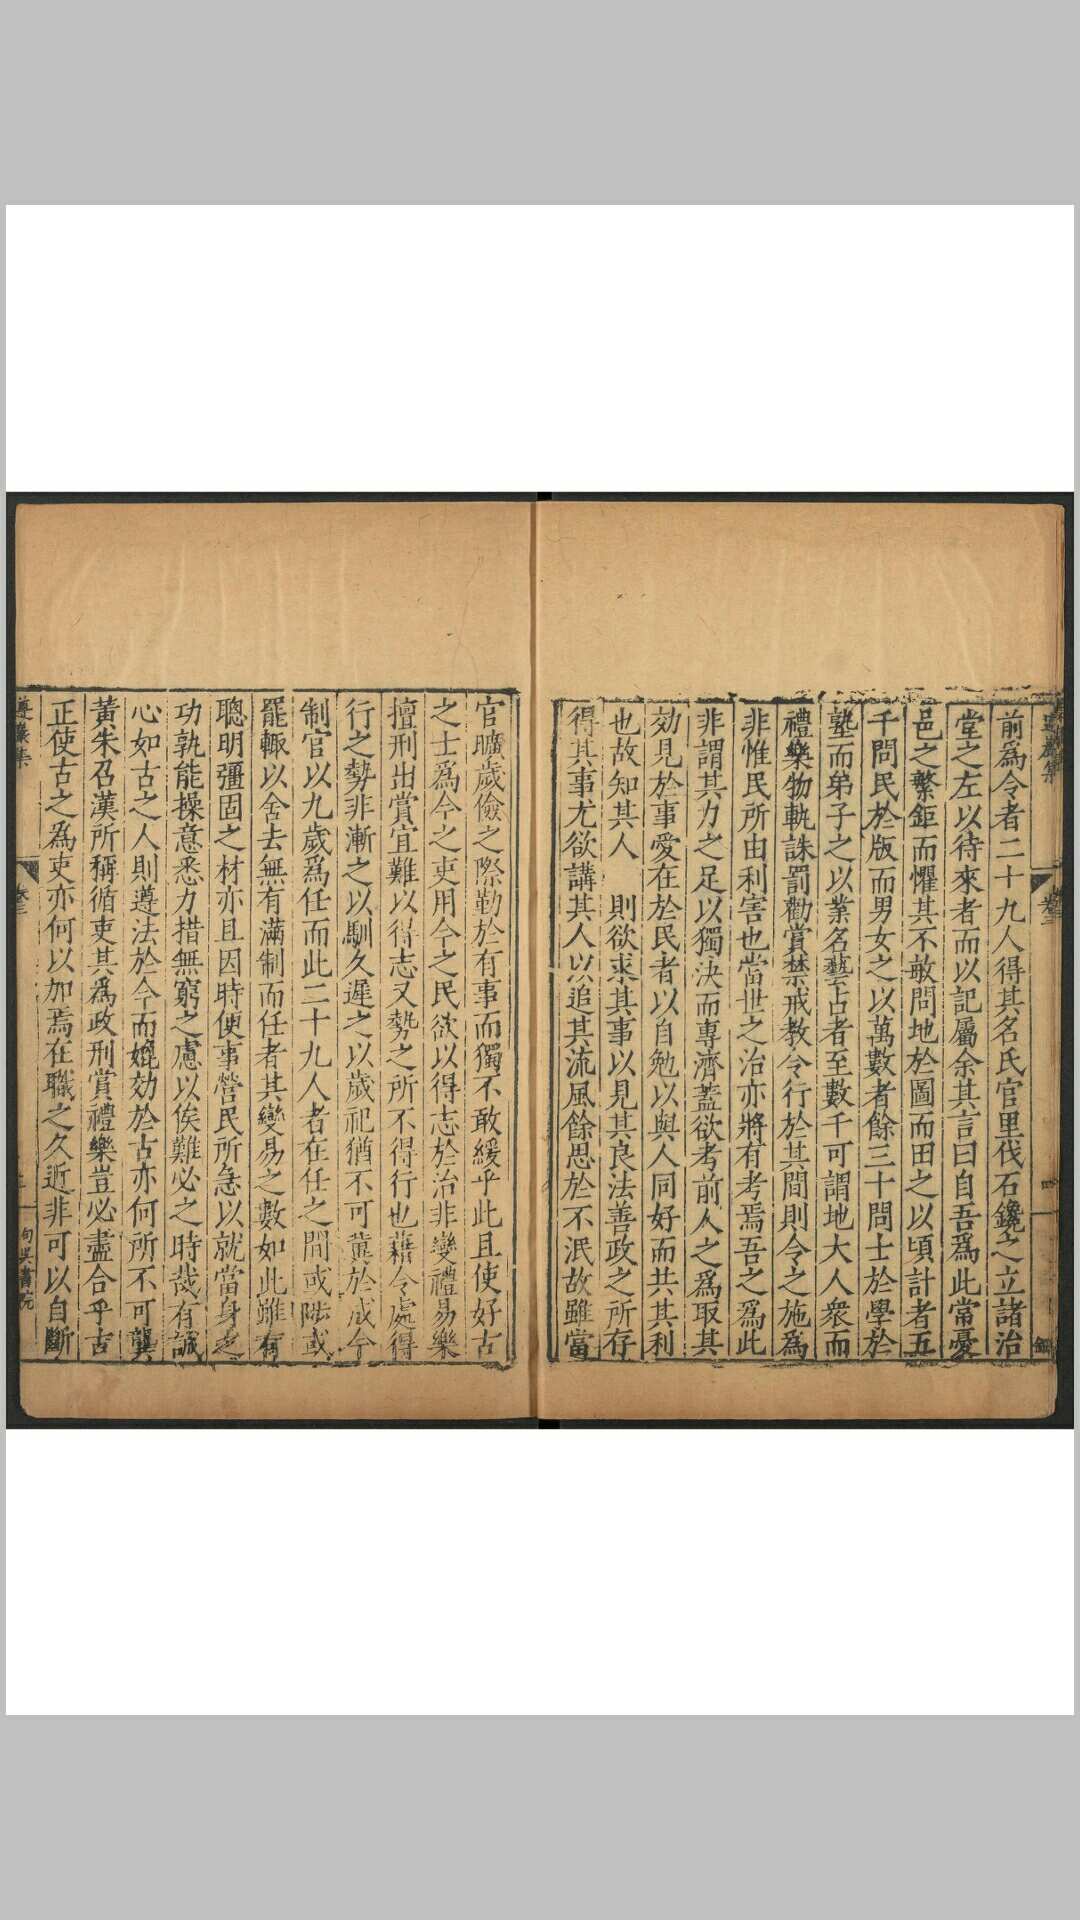 前爲令者二十九人得其名氏官里伐石鑱之立諸治
堂之左以待來者而以記屬余其言曰自吾爲此常憂
邑之繁鉅而懼其不敏問地於圖而田之以頃計者五
千問民於版而男女之以萬數者餘三十問士於學於
塾而弟子之以業名藝占者至數千可謂地大人衆而
禮樂物軌誅罰勸賞禁戒教令行於其間則令之施爲
非惟民所由利害也當世之治亦將有考焉吾之爲此
非謂其力之足以獨決而專濟蓋欲考前人之爲取其
効見於事愛在於民者以自勉以與人同好而共其利
也故知其人 則欲求其事以見其良法善政之所存
得其事尤欲講其人以追其流風餘思於不泯故雖當
官曠歲儉之際勤於有事而獨不敢緩乎此且使好古
之士爲今之吏用今之民欲以得志於治非變禮易樂
擅刑出賞宜難以得志又勢之所不得行也藉令處得
行之勢非漸之以馴久遲之以歲祀猶不可冀於成今
制官以九歲爲任而此二十九人者在任之間或陟或
罷輙以舍去無有滿制而任者其變易之數如此雖有
聰明彊固之材亦且因時便事營民所急以就當身之
功孰能操意悉力措無窮之慮以俟難必之時哉有誠
心如古之人則遵法於今而媲効於古亦何所不可龔
黃朱召漢所稱循吏其爲政刑賞禮樂豈必盡合乎古
正使古之爲吏亦何以加焉在職之久近非可以自斷
遵巖集
卷三
句吳書院